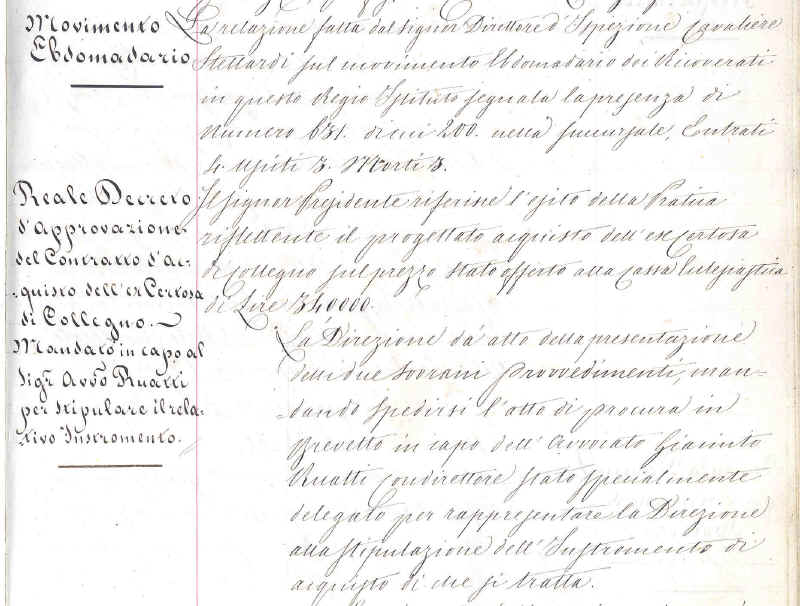 Movimento
Ebdomadario
La relazione fatta dal signor Direttore d'Ispezione Cavaliere
Stellardi sul movimento Ebdomadario dei Ricoverati
in questo Regio Istituto segnala la presenza di
Numero 631. di cui 200. nella succursale, Entrati
Usciti 3. Morti 3.
Reale Decreto
d'approvazione
del Contratto d'ac-
quisto dell'ex Certosa
di Collegno.
Mandato in capo al
Sigr Avvo Ruatti
per stipulare il rela-
tivo Instromento.
Il signor Presidente riferisce l'esito della Pratica
riflettente il progettato acquisto dell'ex Certosa
di Collegno sul prezzo stato offerto alla cassa Eclesiastica
di Lire 340000.
La Direzione dà atto della presentazione
delli due Sovrani Provvedimenti, man-
dando spedirsi l'atto di procura in
Brevetto in capo dell'Avvocato Giacinto
Ruatti Condirettore stato specialmente
delegato per rappresentare la Direzione
alla stipulazione dell'Instromento di
acquisto di che si tratta.